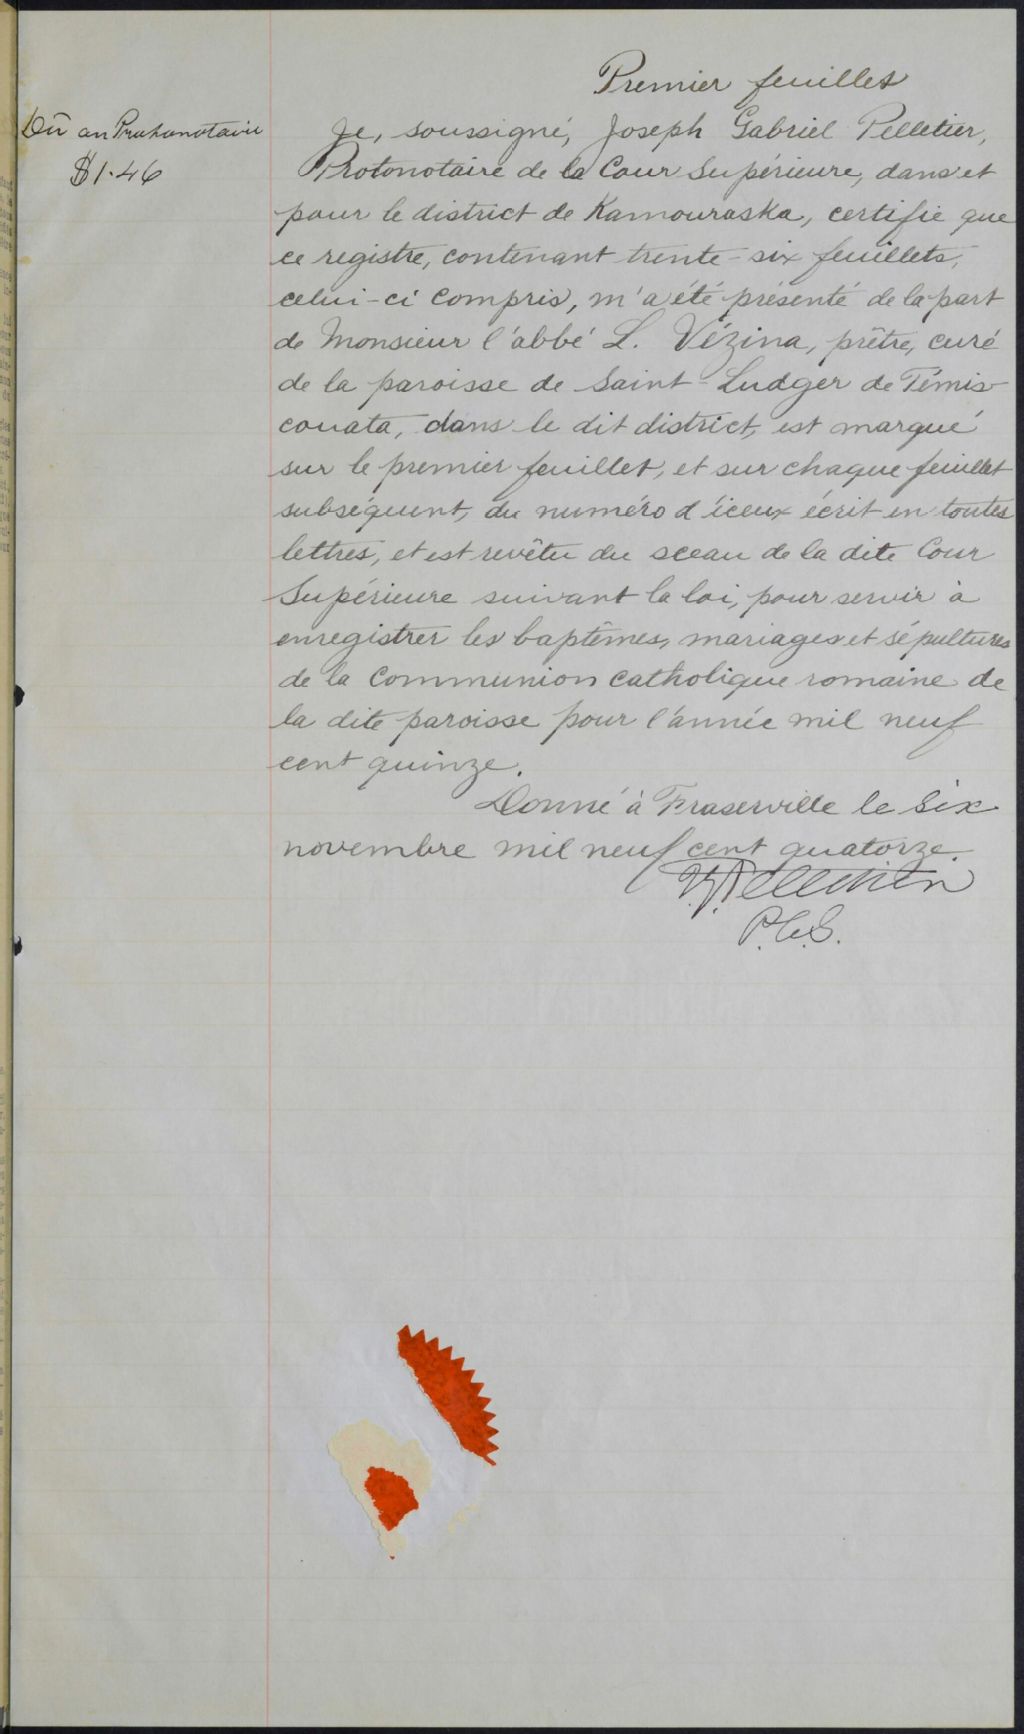 Premier feuillet
Dû au Protonotaire
$1.46
Je, soussigné, Joseph Gabriel Pelletier,
Protonotaire de la Cour Supérieure, dans et
pour le district de Kamouraska, certifie que
ce registre, contenant trente-six feuillets,
celui-ci compris, m'a été présenté de la part
de Monsieur l'abbé L. Vézina, prêtre, curé
de la paroisse de Saint-Ludger de Témis-
couata, dans le dit district, est marqué
sur le premier feuillet, et sur chaque feuillet
subséquent, du numéro d'iceux écrit en toutes
lettres, et est revêtu du sceau de la dite Cour
Supérieure suivant la loi, pour servir à
enregistrer les baptêmes, mariages et sépultures
de la Communion Catholique romaine de
la dite paroisse pour l'année mil neuf
cent quinze.
Donné à Fraserville le six
novembre mil neuf cent quatorze.
J.G. Pelletier
P.C.S.